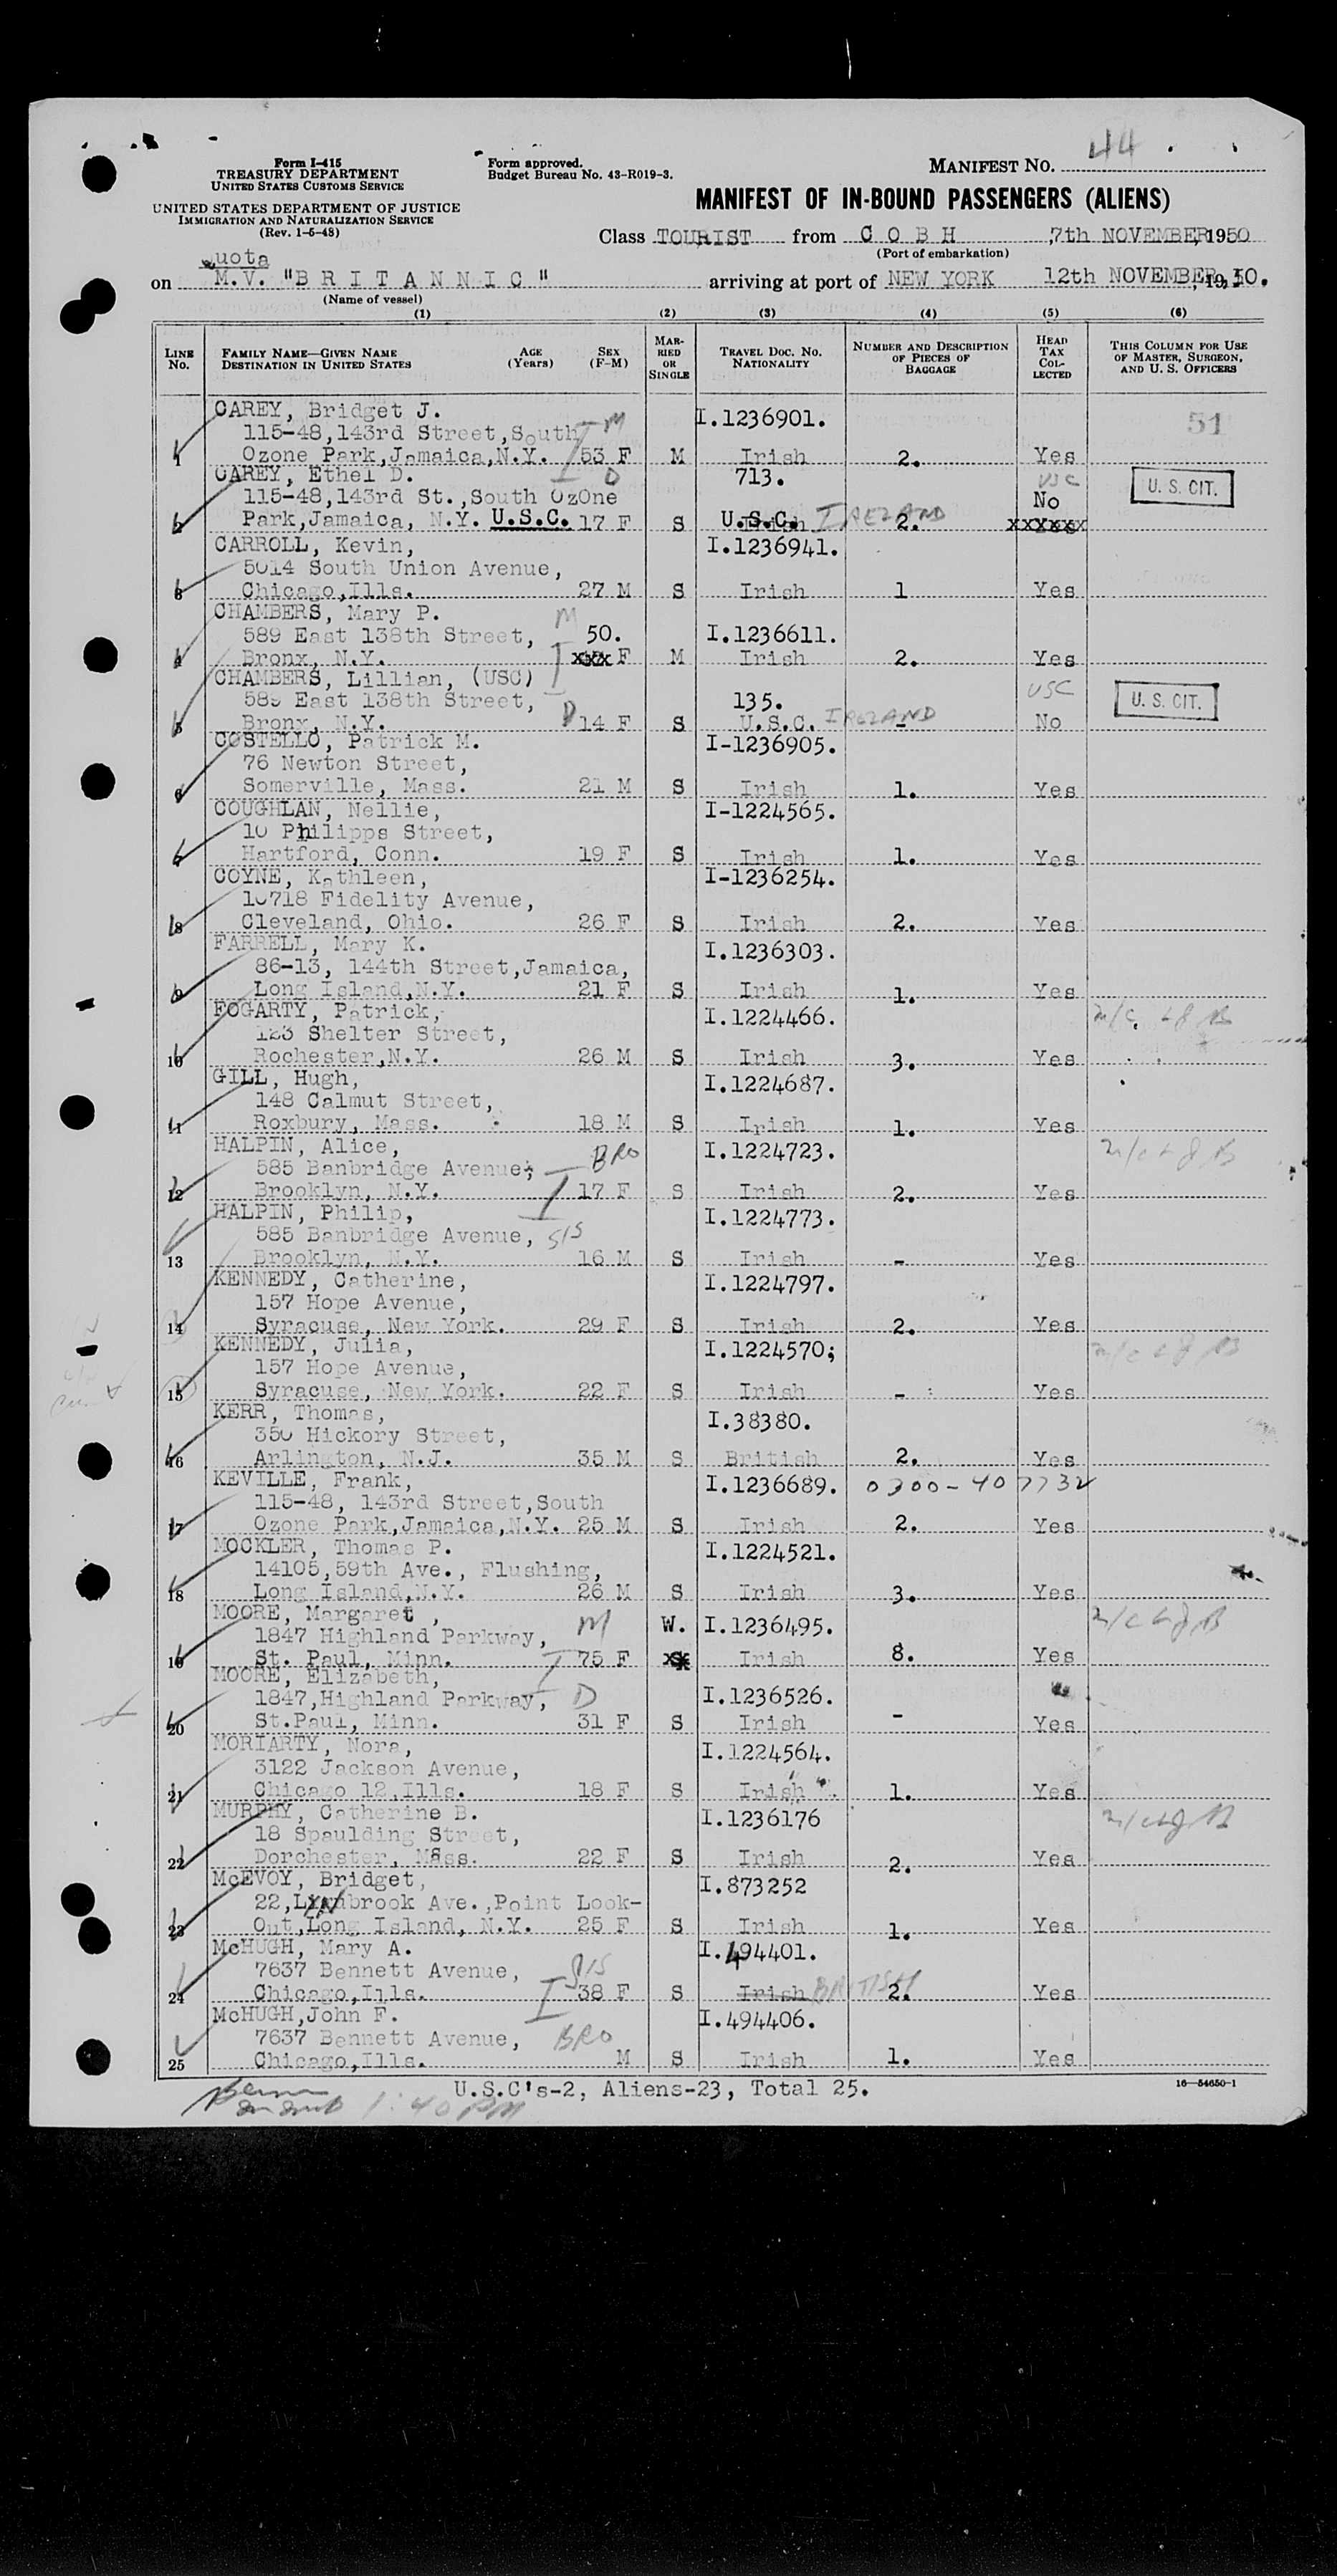 Form I-415
TREASURY DEPARTMENT
UNITED STATES CUSTOMS SERVICE
UNITED STATES DEPARTMENT OF JUSTICE
IMMIGRATION AND NATURALIZATION SERVICE
(Rev. 1-5-48)
Form approved.
Budget Bureau No. 43-R019-3.
MANIFEST NO. 44
MANIFEST OF IN-BOUND PASSENGERS (ALIENS)
Class TOURIST from C O B H 7th NOVEMBER, 1950
(Port of embarkation)
quota
on M.V. "B R I T A N N I C" arriving at port of NEW YORK 12th NOVEMBER, 1950.
(Name of vessel)
(1) (2) (3) (4) (5) (6)
LINE No. FAMILY NAME—GIVEN NAME DESTINATION IN UNITED STATES AGE (Years) SEX (F-M) MARRIED OR SINGLE TRAVEL DOC. NO. NATIONALITY NUMBER AND DESCRIPTION OF PIECES OF BAGGAGE HEAD TAX COLLECTED THIS COLUMN FOR USE OF MASTER, SURGEON, AND U. S. OFFICERS
CAREY, Bridget J. I.1236901. 51
115-48,143rd Street,South M
1 Ozone Park,Jamaica,N.Y. 53 F M Irish 2. Yes
CAREY, Ethel D. D 713. USC U. S. CIT.
115-48,143rd St.,South OzOne No
2 Park,Jamaica, N.Y. U.S.C. 17 F S U.S.C. IRELAND 2. xxxxxx
CARROLL, Kevin, I.1236941.
5014 South Union Avenue,
3 Chicago,Ills. 27 M S Irish 1 Yes
CHAMBERS, Mary P. M
589 East 138th Street, 50. I.1236611.
4 Bronx, N.Y. xxx F M Irish 2. Yes
CHAMBERS, Lillian, (USC) USC U. S. CIT.
589 East 138th Street, 135.
5 Bronx, N.Y. D 14 F S U.S.C. IRELAND - No
COSTELLO, Patrick M. I-1236905.
76 Newton Street,
6 Somerville, Mass. 21 M S Irish 1. Yes
COUGHLAN, Nellie, I-1224565.
10 Philipps Street,
7 Hartford, Conn. 19 F S Irish 1. Yes
COYNE, Kathleen, I-1236254.
10718 Fidelity Avenue,
8 Cleveland, Ohio. 26 F S Irish 2. Yes
FARRELL, Mary K. I.1236303.
86-13, 144th Street,Jamaica,
9 Long Island,N.Y. 21 F S Irish 1. Yes
FOGARTY, Patrick, I.1224466.
123 Shelter Street,
10 Rochester,N.Y. 26 M S Irish 3. Yes
GILL, Hugh, I.1224687.
148 Calmut Street,
11 Roxbury, Mass. 18 M S Irish 1. Yes
HALPIN, Alice, BRO I.1224723.
585 Banbridge Avenue;
12 Brooklyn, N.Y. 17 F S Irish 2. Yes
HALPIN, Philip, I.1224773.
585 Banbridge Avenue, SIS
13 Brooklyn, N.Y. 16 M S Irish - Yes
KENNEDY, Catherine, I.1224797.
157 Hope Avenue,
14 Syracuse, New York. 29 F S Irish 2. Yes
KENNEDY, Julia, I.1224570;
157 Hope Avenue,
15 Syracuse, New York. 22 F S Irish - Yes
KERR, Thomas, I.38380.
350 Hickory Street,
16 Arlington, N.J. 35 M S British 2. Yes
KEVILLE, Frank, I.1236689. 0300-407732
115-48, 143rd Street,South
17 Ozone Park,Jamaica,N.Y. 25 M S Irish 2. Yes
MOCKLER, Thomas P. I.1224521.
14105,59th Ave., Flushing,
18 Long Island,N.Y. 26 M S Irish 3. Yes
MOORE, Margaret , M W. I.1236495.
1847 Highland Parkway,
19 St. Paul, Minn. 75 F Irish 8. Yes
MOORE, Elizabeth,
1847,Highland Parkway, D I.1236526.
20 St.Paul, Minn. 31 F S Irish - Yes
MORIARTY, Nora, I.1224564.
3122 Jackson Avenue,
21 Chicago 12,Ills. 18 F S Irish 1. Yes
MURPHY, Catherine B. I.1236176
18 Spaulding Street,
22 Dorchester, Mass. 22 F S Irish 2. Yes
McEVOY, Bridget, I.873252
22,Lynbrook Ave.,Point Look-
23 Out,Long Island, N.Y. 25 F S Irish 1. Yes
McHUGH, Mary A. I.494401.
7637 Bennett Avenue, SIS
24 Chicago,Ills. 38 F S Irish BRITISH 2. Yes
McHUGH,John F. I.494406.
7637 Bennett Avenue, BRO
25 Chicago,Ills. M S Irish 1. Yes
U.S.C's-2, Aliens-23, Total 25.
16—54650-1
1:40 PM